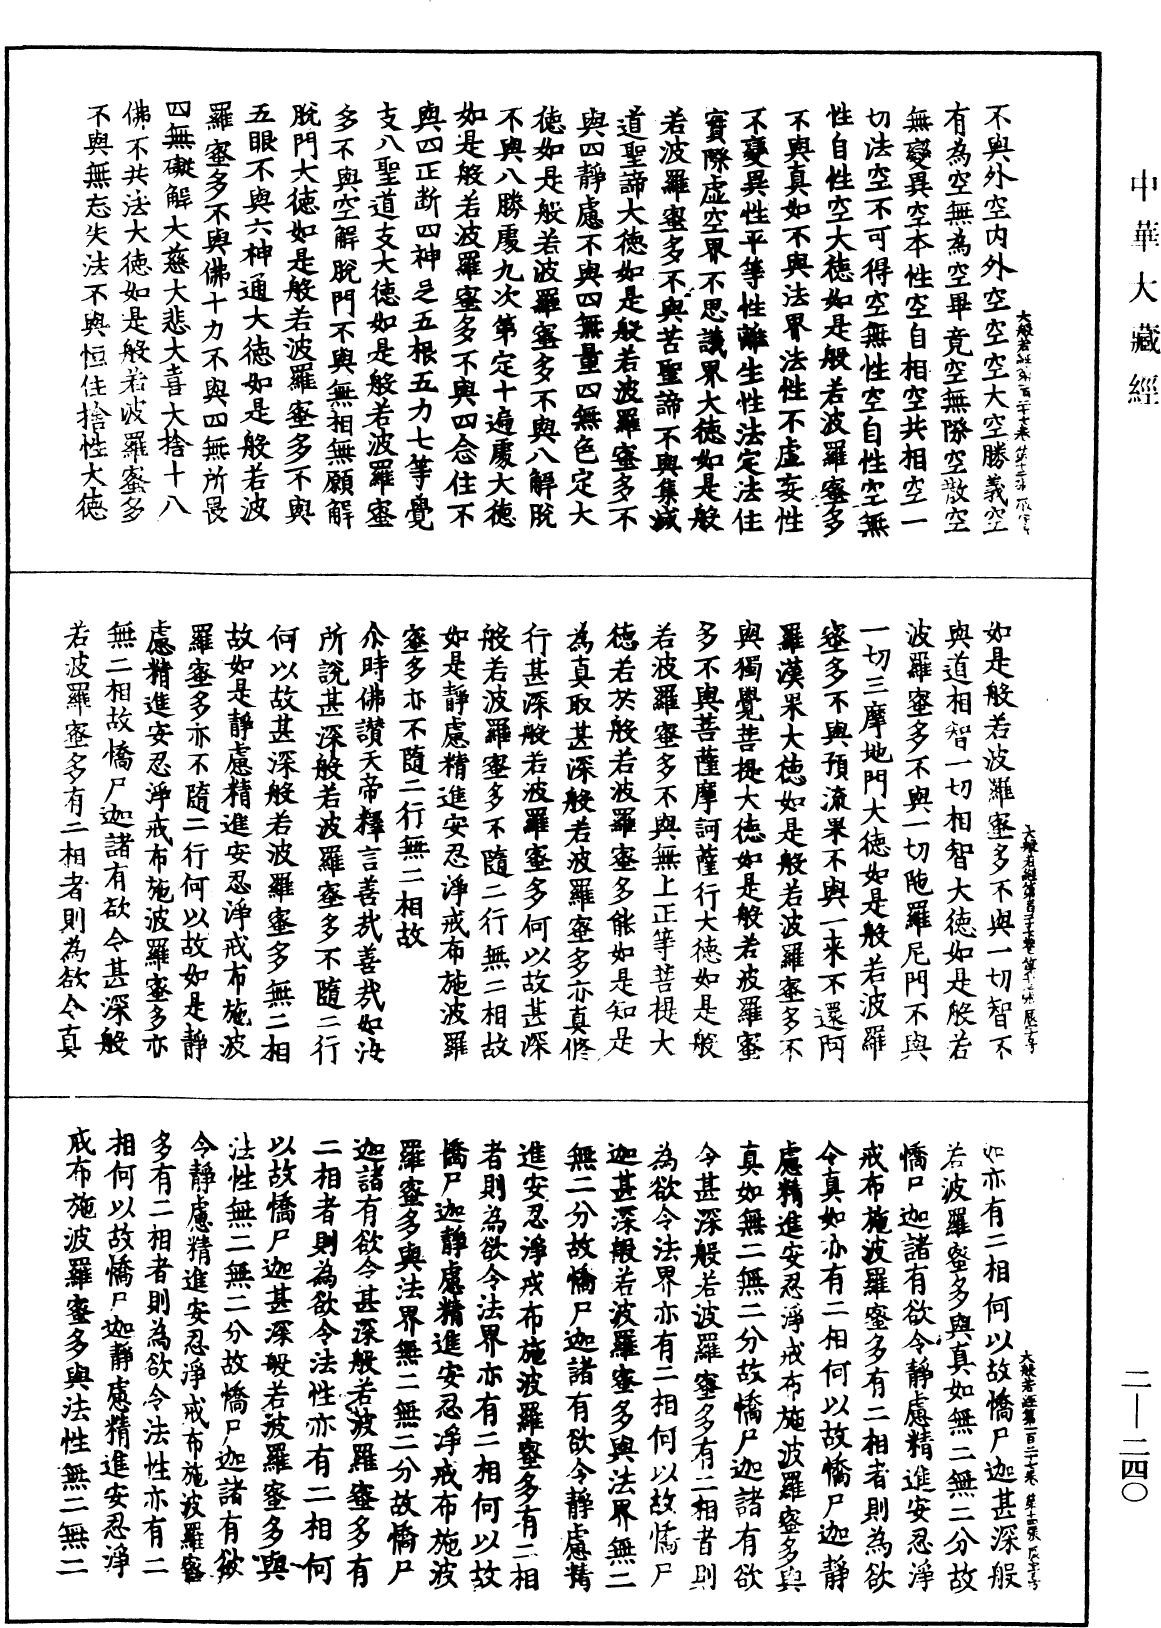 中華大藏經
不與外空內外空空空大空勝義空
有為空無為空畢竟空無際空散空
無變異空本性空自相空共相空一
切法空不可得空無性空自性空無
性自性空大德如是般若波羅蜜多
不與真如不與法界法性不虛妄性
不變異性平等性離生性法定法住
實際虛空界不思議界大德如是般
若波羅蜜多不與苦聖諦不與集滅
道聖諦大德如是般若波羅蜜多不
與四靜慮不與四無量四無色定大
德如是般若波羅蜜多不與八解脫
不與八勝處九次第定十遍處大德
如是般若波羅蜜多不與四念住不
與四正斷四神足五根五力七等覺
支八聖道支大德如是般若波羅蜜
多不與空解脫門不與無相無願解
脫門大德如是般若波羅蜜多不與
五眼不與六神通大德如是般若波
羅蜜多不與佛十力不與四無所畏
四無礙解大慈大悲大喜大捨十八
佛不共法大德如是般若波羅蜜多
不與無忘失法不與恒住捨性大德
如是般若波羅蜜多不與一切智不
與道相智一切相智大德如是般若
波羅蜜多不與一切陁羅尼門不與
一切三摩地門大德如是般若波羅
蜜多不與預流果不與一來不還阿
羅漢果大德如是般若波羅蜜多不
與獨覺菩提大德如是般若波羅蜜
多不與菩薩摩訶薩行大德如是般
若波羅蜜多不與無上正等菩提大
德若於般若波羅蜜多能如是知是
為真取甚深般若波羅蜜多亦真修
行甚深般若波羅蜜多何以故甚深
般若波羅蜜多不隨二行無二相故
如是靜慮精進安忍淨戒布施波羅
蜜多亦不隨二行無二相故
尒時佛讚天帝釋言善哉善哉如汝
所說甚深般若波羅蜜多不隨二行
何以故甚深般若波羅蜜多無二相
故如是靜慮精進安忍淨戒布施波
羅蜜多亦不隨二行何以故如是靜
慮精進安忍淨戒布施波羅蜜多亦
無二相故憍尸迦諸有欲令甚深般
若波羅蜜多有二相者則為欲令真
如亦有二相何以故憍尸迦甚深般
若波羅蜜多與真如無二無二分故
憍尸迦諸有欲令靜慮精進安忍淨
戒布施波羅蜜多有二相者則為欲
令真如亦有二相何以故憍尸迦靜
慮精進安忍淨戒布施波羅蜜多與
真如無二無二分故憍尸迦諸有欲
令甚深般若波羅蜜多有二相者則
為欲令法界亦有二相何以故憍尸
迦甚深般若波羅蜜多與法界無二
無二分故憍尸迦諸有欲令靜慮精
進安忍淨戒布施波羅蜜多有二相
者則為欲令法界亦有二相何以故
憍尸迦靜慮精進安忍淨戒布施波
羅蜜多與法界無二無二分故憍尸
迦諸有欲令甚深般若波羅蜜多有
二相者則為欲令法性亦有二相何
以故憍尸迦甚深般若波羅蜜多與
法性無二無二分故憍尸迦諸有欲
令靜慮精進安忍淨戒布施波羅蜜
多有二相者則為欲令法性亦有二
相何以故憍尸迦靜慮精進安忍淨
戒布施波羅蜜多與法性無二無二
二—二四〇